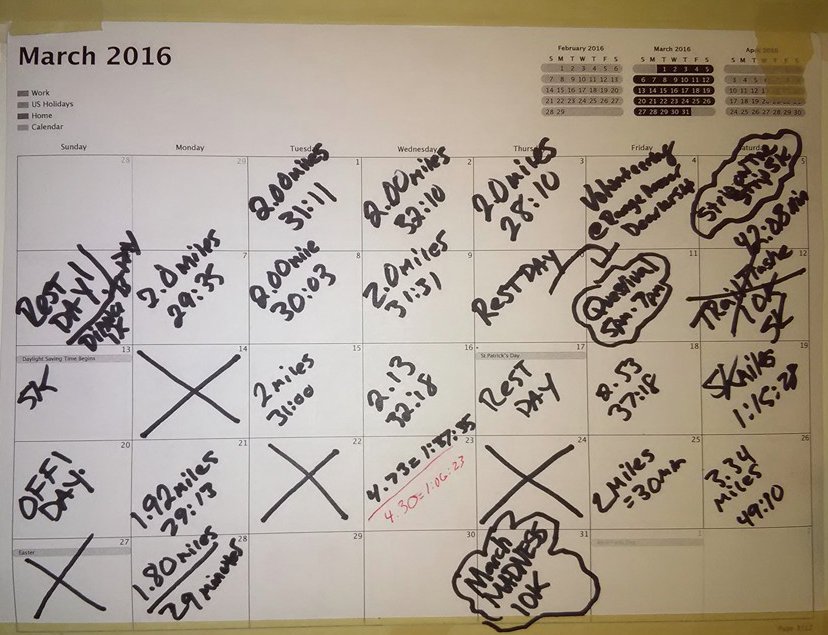 March 2016
February 2016
March 2016
April 2016
S M T W T F S
S M T W T F S
S M T W T F S
1 2 3 4 5 6
1 2 3 4 5
7 8 9 10 11 12 13
6 7 8 9 10 11 12
3 4 5 6
14 15 16 17 18 19 20
13 14 15 16 17 18 19
10 11 12
21 22 23 24 25 26 27
20 21 22 23 24 25 26
17 18 19 20 21 22 23
28 29
27 28 29 30 31
24 25 26 27 28 29 30
Work
US Holidays
Home
Calendar
Sunday
Monday
Tuesday
Wednesday
Friday
28
29
1
2.00miles
31:11
2
2.00miles
32:10
3
2.0miles
28:10
4
Volunteering
@
5
5K
42:08min
REST
DAY!
7
2.0miles
29:35
8
2.00mile
30:03
2.0miles
31:31
REST DAY
11
5pm-7pm
12
10K
5K
13
Daylight Saving Time Begins
5K
14
15
2 miles
31:00
16
2.13
32:18
17
St. Patrick's Day
REST
DAY
18
2.53
37:18
19
5Kmiles
1:15:28
20
OFF!
DAY.
21
1.92miles
29:13
22
23
4.73=1:37:35
4.30=1:06:23
24
25
2 Miles
=30mm
26
3.34
miles
49:10
27
Easter
28
1.80miles
29minutes
29
30
31
March
MADNESS
10K
1